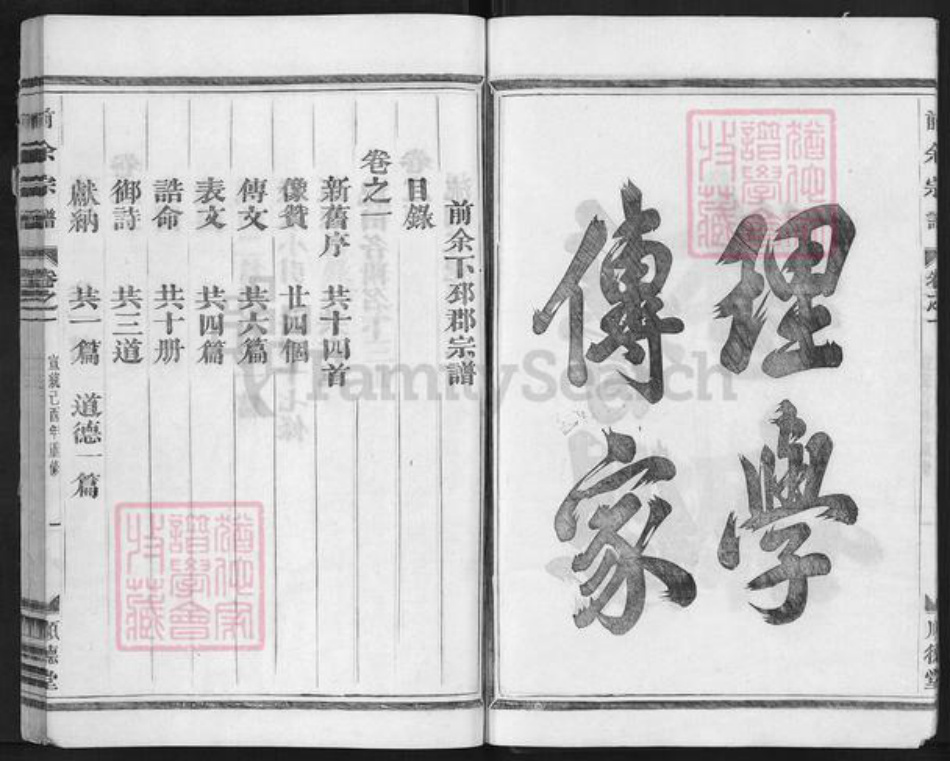 理學
傳家
前余宗譜
卷之一
順德堂
前余下邳郡宗譜
目錄
卷之一
新舊序 共十四首
像贊 廿四個
傳文 共六篇
表文 共四篇
誥命 共十册
御詩 共三道
獻納 共一篇 道德一篇
前余宗譜
卷之一
宣統己酉年重修
一
順德堂
猶他家譜學會收藏
猶他家譜學會收藏
FamilySearch